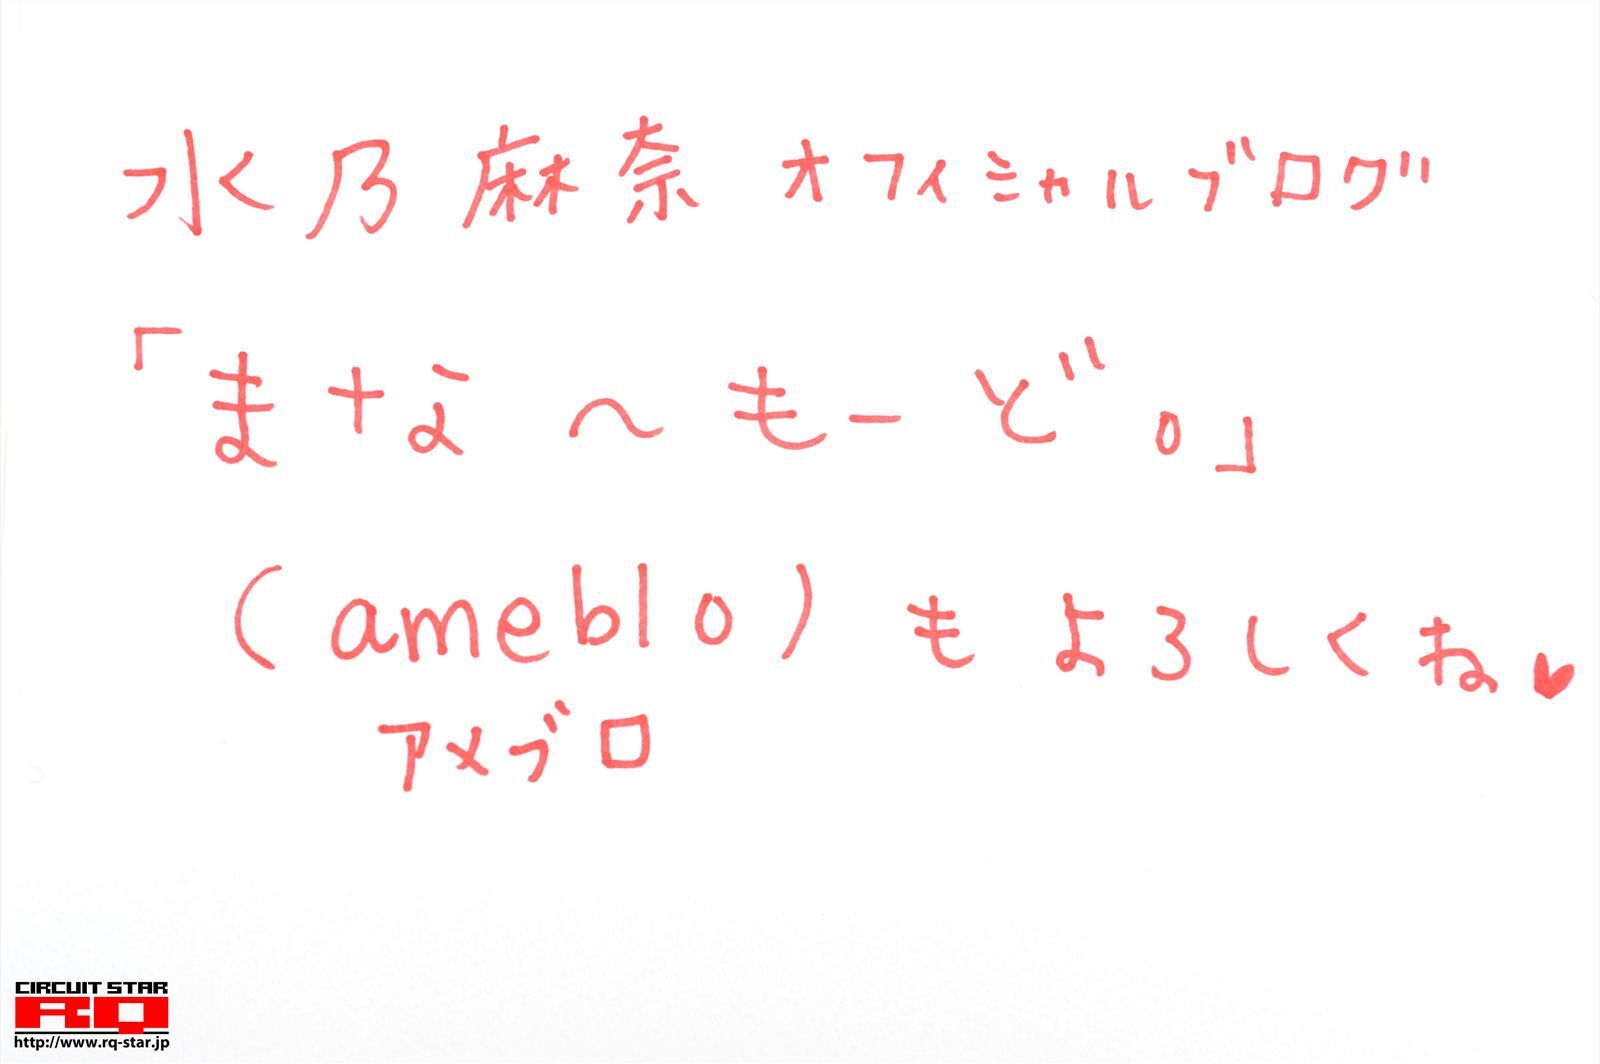 水乃麻奈 オフィシャルブログ
「まなな～もーど。」
(ameblo)もよろしくね♥
アメブロ
CIRCUIT STAR
RQ
http://www.rq-star.jp